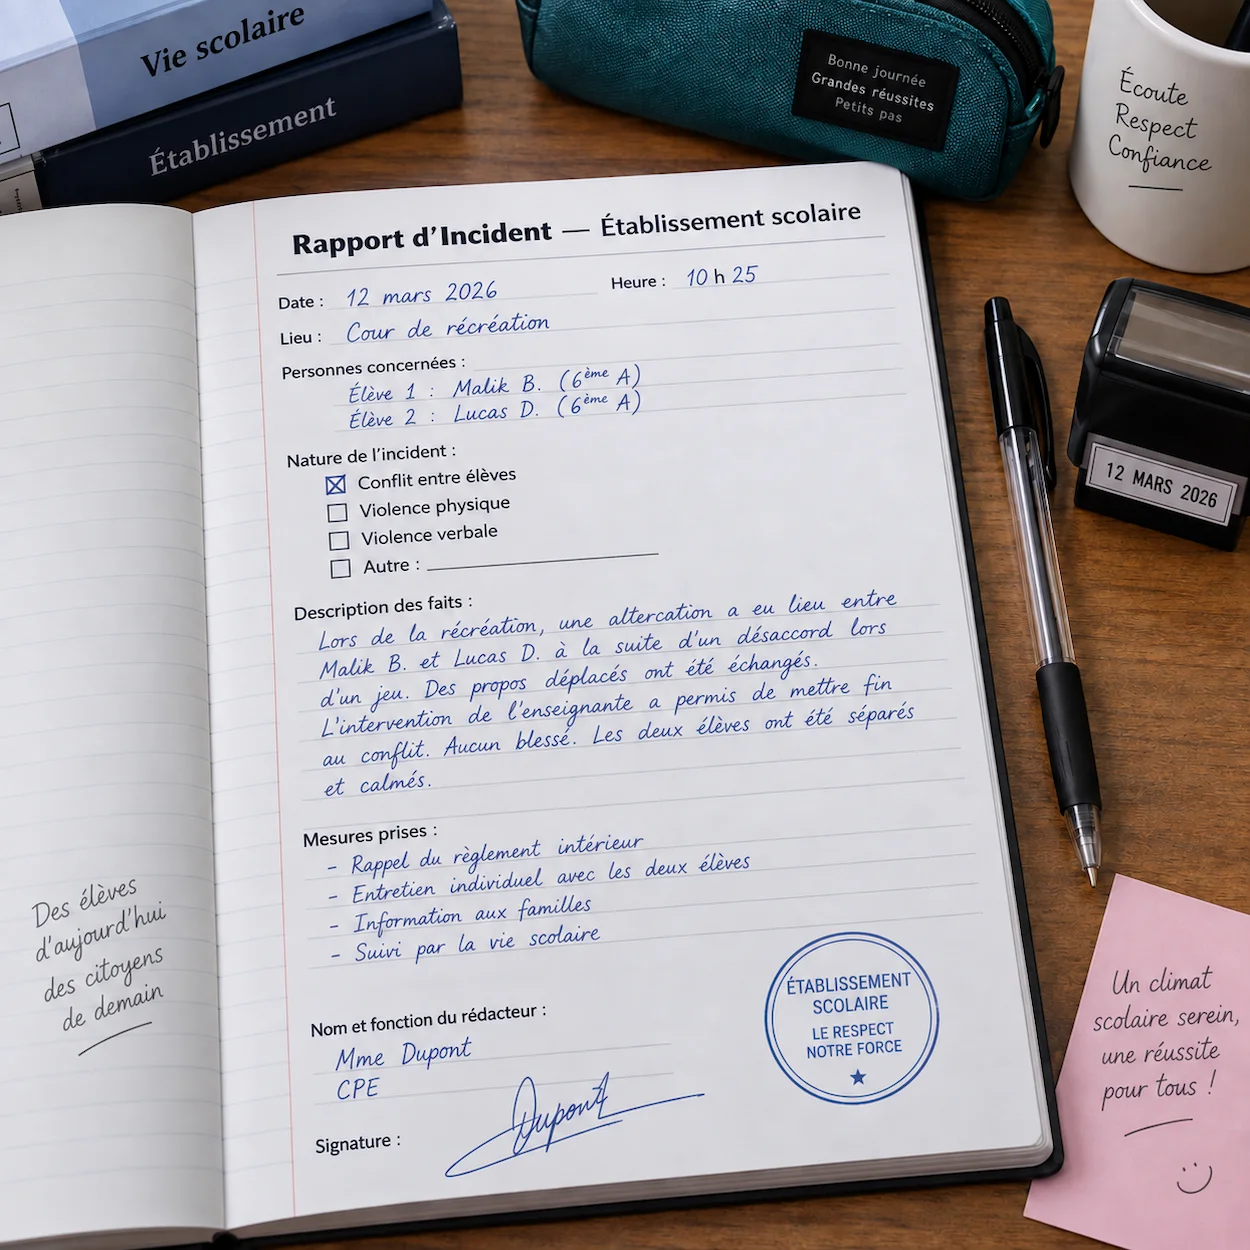 Vie scolaire
Établissement
Bonne journée
Grandes réussites
Petits pas
Écoute
Respect
Confiance
Rapport d'Incident — Établissement scolaire
Date : 12 mars 2026 Heure : 10 h 25
Lieu : Cour de récréation
Personnes concernées :
Élève 1 : Malik B. (6ème A)
Élève 2 : Lucas D. (6ème A)
Nature de l'incident :
☒ Conflit entre élèves
☐ Violence physique
☐ Violence verbale
☐ Autre :
Description des faits :
Lors de la récréation, une altercation a eu lieu entre
Malik B. et Lucas D. à la suite d'un désaccord lors
d'un jeu. Des propos déplacés ont été échangés.
L'intervention de l'enseignante a permis de mettre fin
au conflit. Aucun blessé. Les deux élèves ont été séparés
et calmés.
Mesures prises :
- Rappel du règlement intérieur
- Entretien individuel avec les deux élèves
- Information aux familles
- Suivi par la vie scolaire
Nom et fonction du rédacteur :
Mme Dupont
CPE
Signature : Dupont
ÉTABLISSEMENT
SCOLAIRE
LE RESPECT
NOTRE FORCE
Des élèves
d'aujourd'hui
des citoyens
de demain
12 MARS 2026
Un climat
scolaire serein,
une réussite
pour tous !